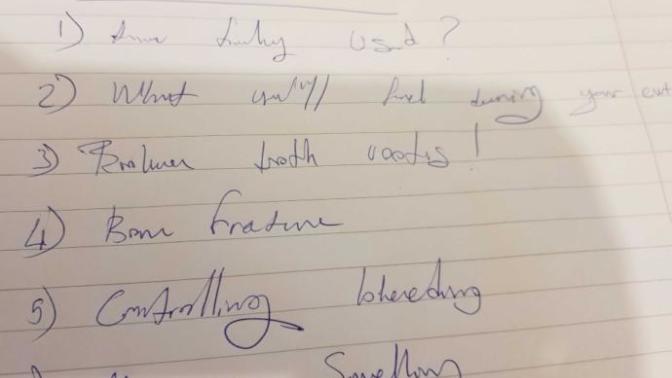 1) used?
2) What you'll feel during your ext
3) Broken tooth roots!
4) Bone fracture
5) Controlling bleeding
Swelling